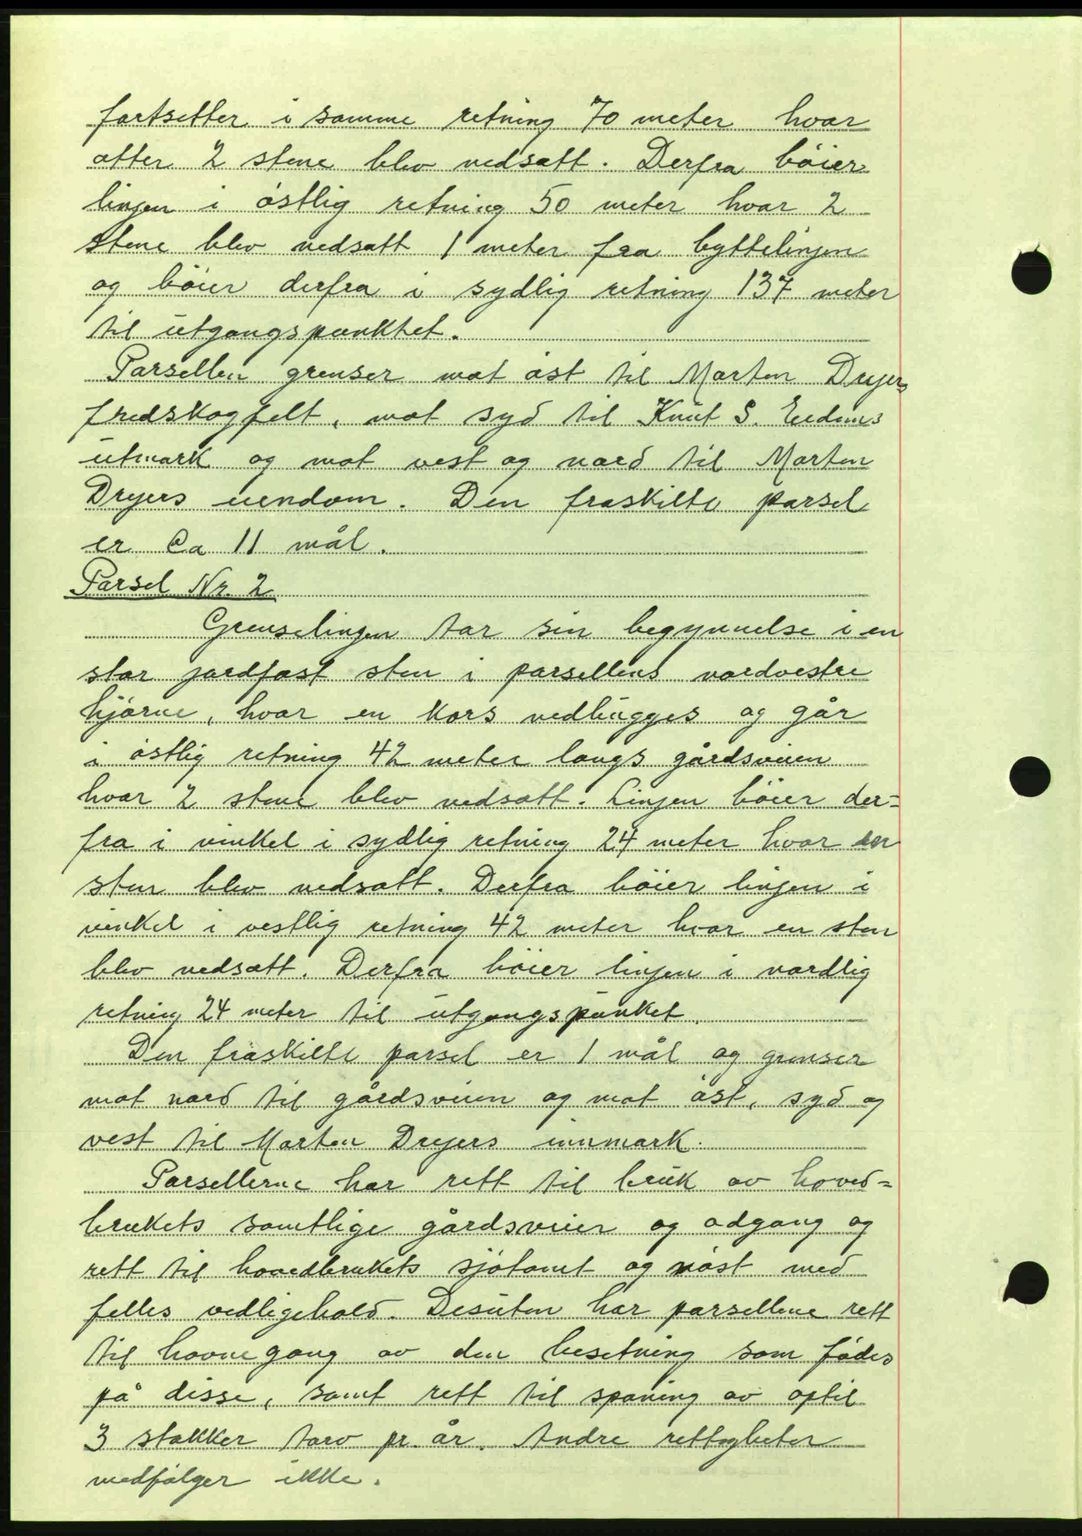 fortsetter i samme retning 70 meter hvor
atter 2 stene blev nedsatt. Derfra böier
linjen i östlig retning 50 meter hvor 2
stene blev nedsatt 1 meter fra byttelinjen
og böier derfra i sydlig retning 137 meter
til utgangspunktet.
Parsellen grenser mot öst til Morten Dryers
fredskogfelt, mot syd til Knut S. Eidems
utmark og mot vest og nord til Morten
Dryers eiendom. Den fraskilte parsel
er ca 11 mål.
Parsel Nr. 2
Grenselinjen tar sin begynnelse i en
stor jordfast sten i parsellens nordvestre
hjörne, hvor en kors nedhugges og går
i östlig retning 42 meter langs gårdsveien
hvor 2 stene blev nedsatt. Linjen böier der=
fra i vinkel i sydlig retning 24 meter hvor en
sten blev nedsatt. Derfra böier linjen i
vinkel i vestlig retning 42 meter hvor en sten
blev nedsatt. Derfra böier linjen i nordlig
retning 24 meter til utgangspunket.
Den fraskilte parsel er 1 mål og grenser
mot nord til gårdsveien og mot öst, syd og
vest til Morten Dryers innmark.
Parsellerne har rett til bruk av hoved=
brukets samtlige gårdsveier og adgang og
rett til hovedbrukets sjötomt og nöst med
felles vedligehold. Desuten har parsellene rett
til havnegang av den besetning som födes
på disse, samt rett til spaning av optil
3 stakker torv pr. år. Andre rettigheter
medfölger ikke.